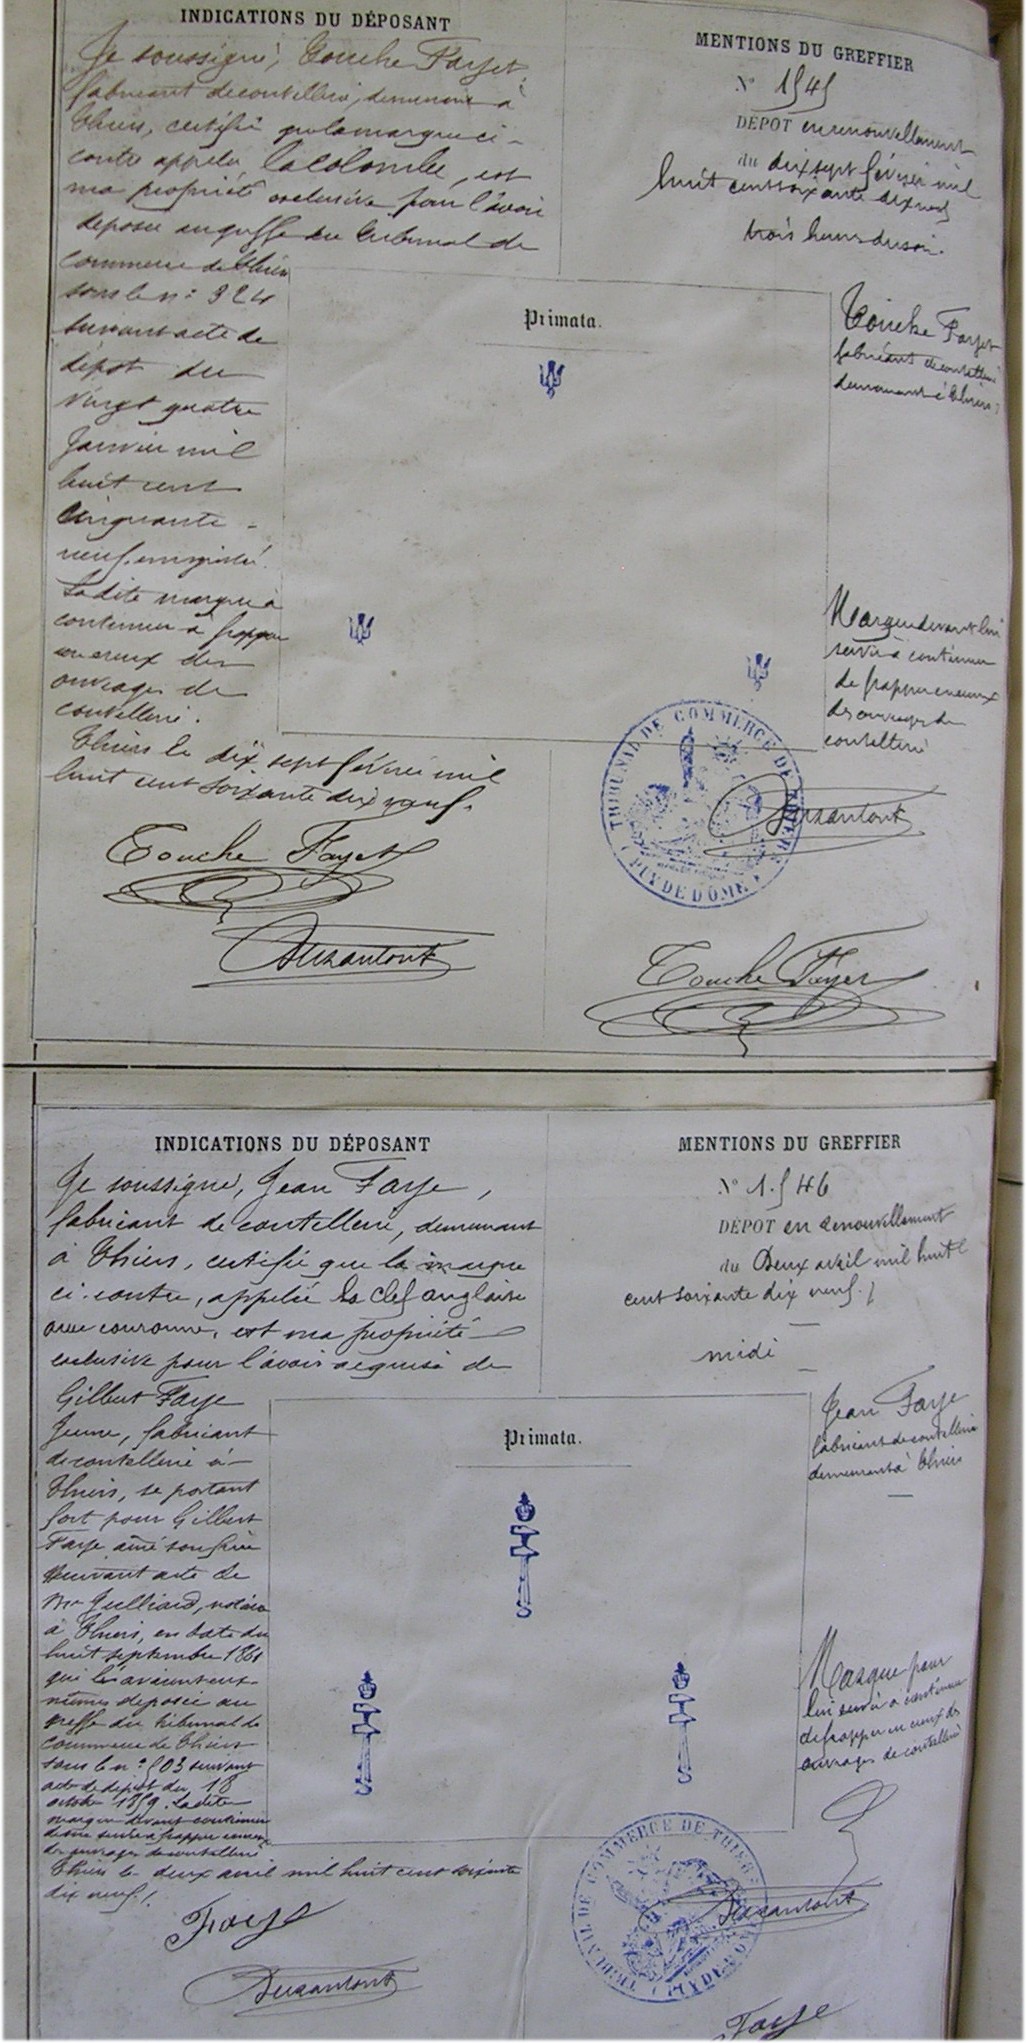 INDICATIONS DU DÉPOSANT
Je soussigné, Touche Fayet
fabricant de coutellerie, demeurant à
Thiers, certifie que la marque ci-
contre appelée la colombe, est
ma propriété exclusive pour l'avoir
déposée au greffe du tribunal de
commerce de Thiers
sous le n° 324
suivant acte de
dépot du
vingt quatre
Janvier mil
huit cent
cinquante-
neuf enregistré.
Ladite marque à
continuer à frapper
en creux des
ouvrages de
coutellerie.
Thiers le dix sept février mil
huit cent soixante dix neuf.
Touche Fayet
Duzantont
MENTIONS DU GREFFIER
N° 1545
DÉPOT en renouvellement
du dix sept février mil
huit cent soixante dix neuf
trois heures du soir.
Primata.
Touche Fayet
fabricant de coutellerie
demeurant à Thiers
Marque devant lui
servir à continuer
de frapper en creux
des ouvrages de
coutellerie
TRIBUNAL DE COMMERCE DE THIERS
(PUY DE DÔME)
Duzantont
Touche Fayet
INDICATIONS DU DÉPOSANT
Je soussigné, Jean Faye,
fabricant de coutellerie, demeurant
à Thiers, certifie que la marque
ci-contre, appelée la clef anglaise
avec couronne, est ma propriété
exclusive pour l'avoir acquise de
Gilbert Faye
Jeune, fabricant
de coutellerie à
Thiers, se portant
fort pour Gilbert
Faye ainé son frère
suivant acte de
Me Juilliard, notaire
à Thiers, en date du
huit septembre 1861
qui l'avaient eux-
mêmes déposée au
greffe du tribunal de
commerce de Thiers
sous le n° 503 suivant
acte de dépot du 18
octobre 1859. Ladite
marque devant continuer
de me servir à frapper en creux
des ouvrages de coutellerie
Thiers le deux avril mil huit cent soixante
dix neuf.
Faye
Duzantont
MENTIONS DU GREFFIER
N° 1.546
DÉPOT en renouvellement
du Deux avril mil huit
cent soixante dix neuf.
midi
Primata.
Jean Faye
fabricant de coutellerie
demeurant à Thiers
Marque pour
lui servir à continuer
de frapper en creux des
ouvrages de coutellerie
TRIBUNAL DE COMMERCE DE THIERS
(PUY DE DÔME)
Duzantont
Faye